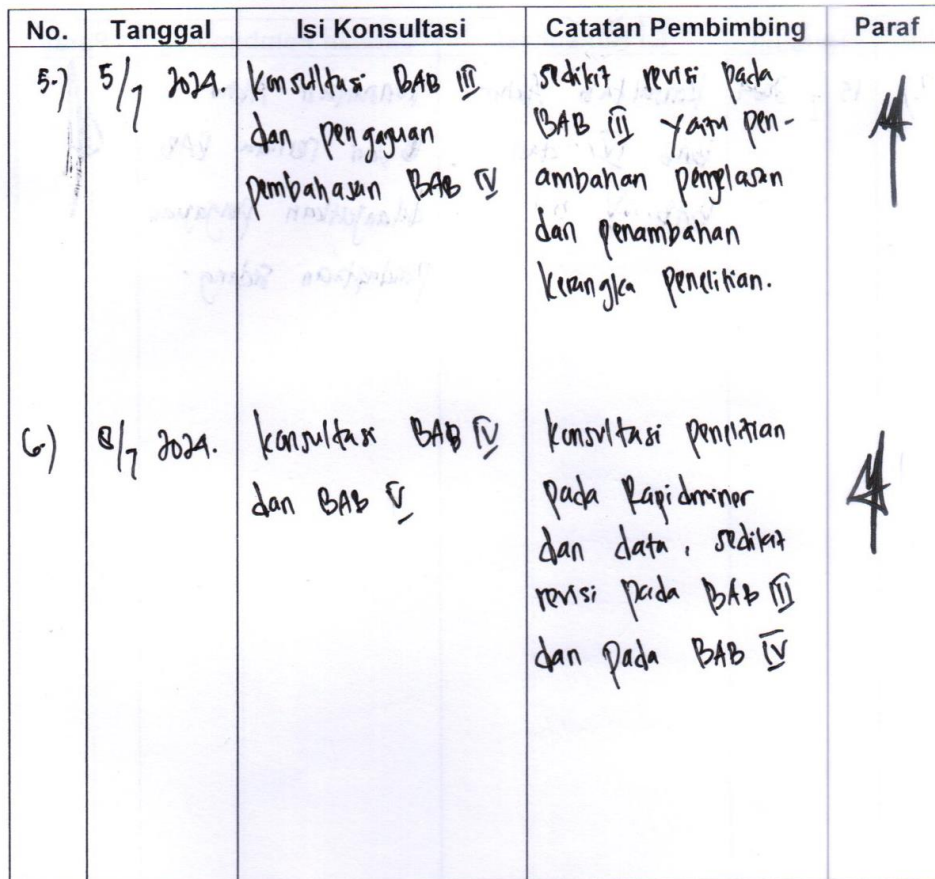 No. Tanggal Isi Konsultasi Catatan Pembimbing Paraf
5.) 5/7 2024. Konsultasi BAB III
dan pengajuan
pembahasan BAB IV
sedikit revisi pada
BAB III yaitu pen-
ambahan penjelasan
dan penambahan
kerangka penelitian.
6.) 8/7 2024. Konsultasi BAB IV
dan BAB V
konsultasi penelitian
pada Rapidminer
dan data, sedikit
revisi pada BAB III
dan pada BAB IV